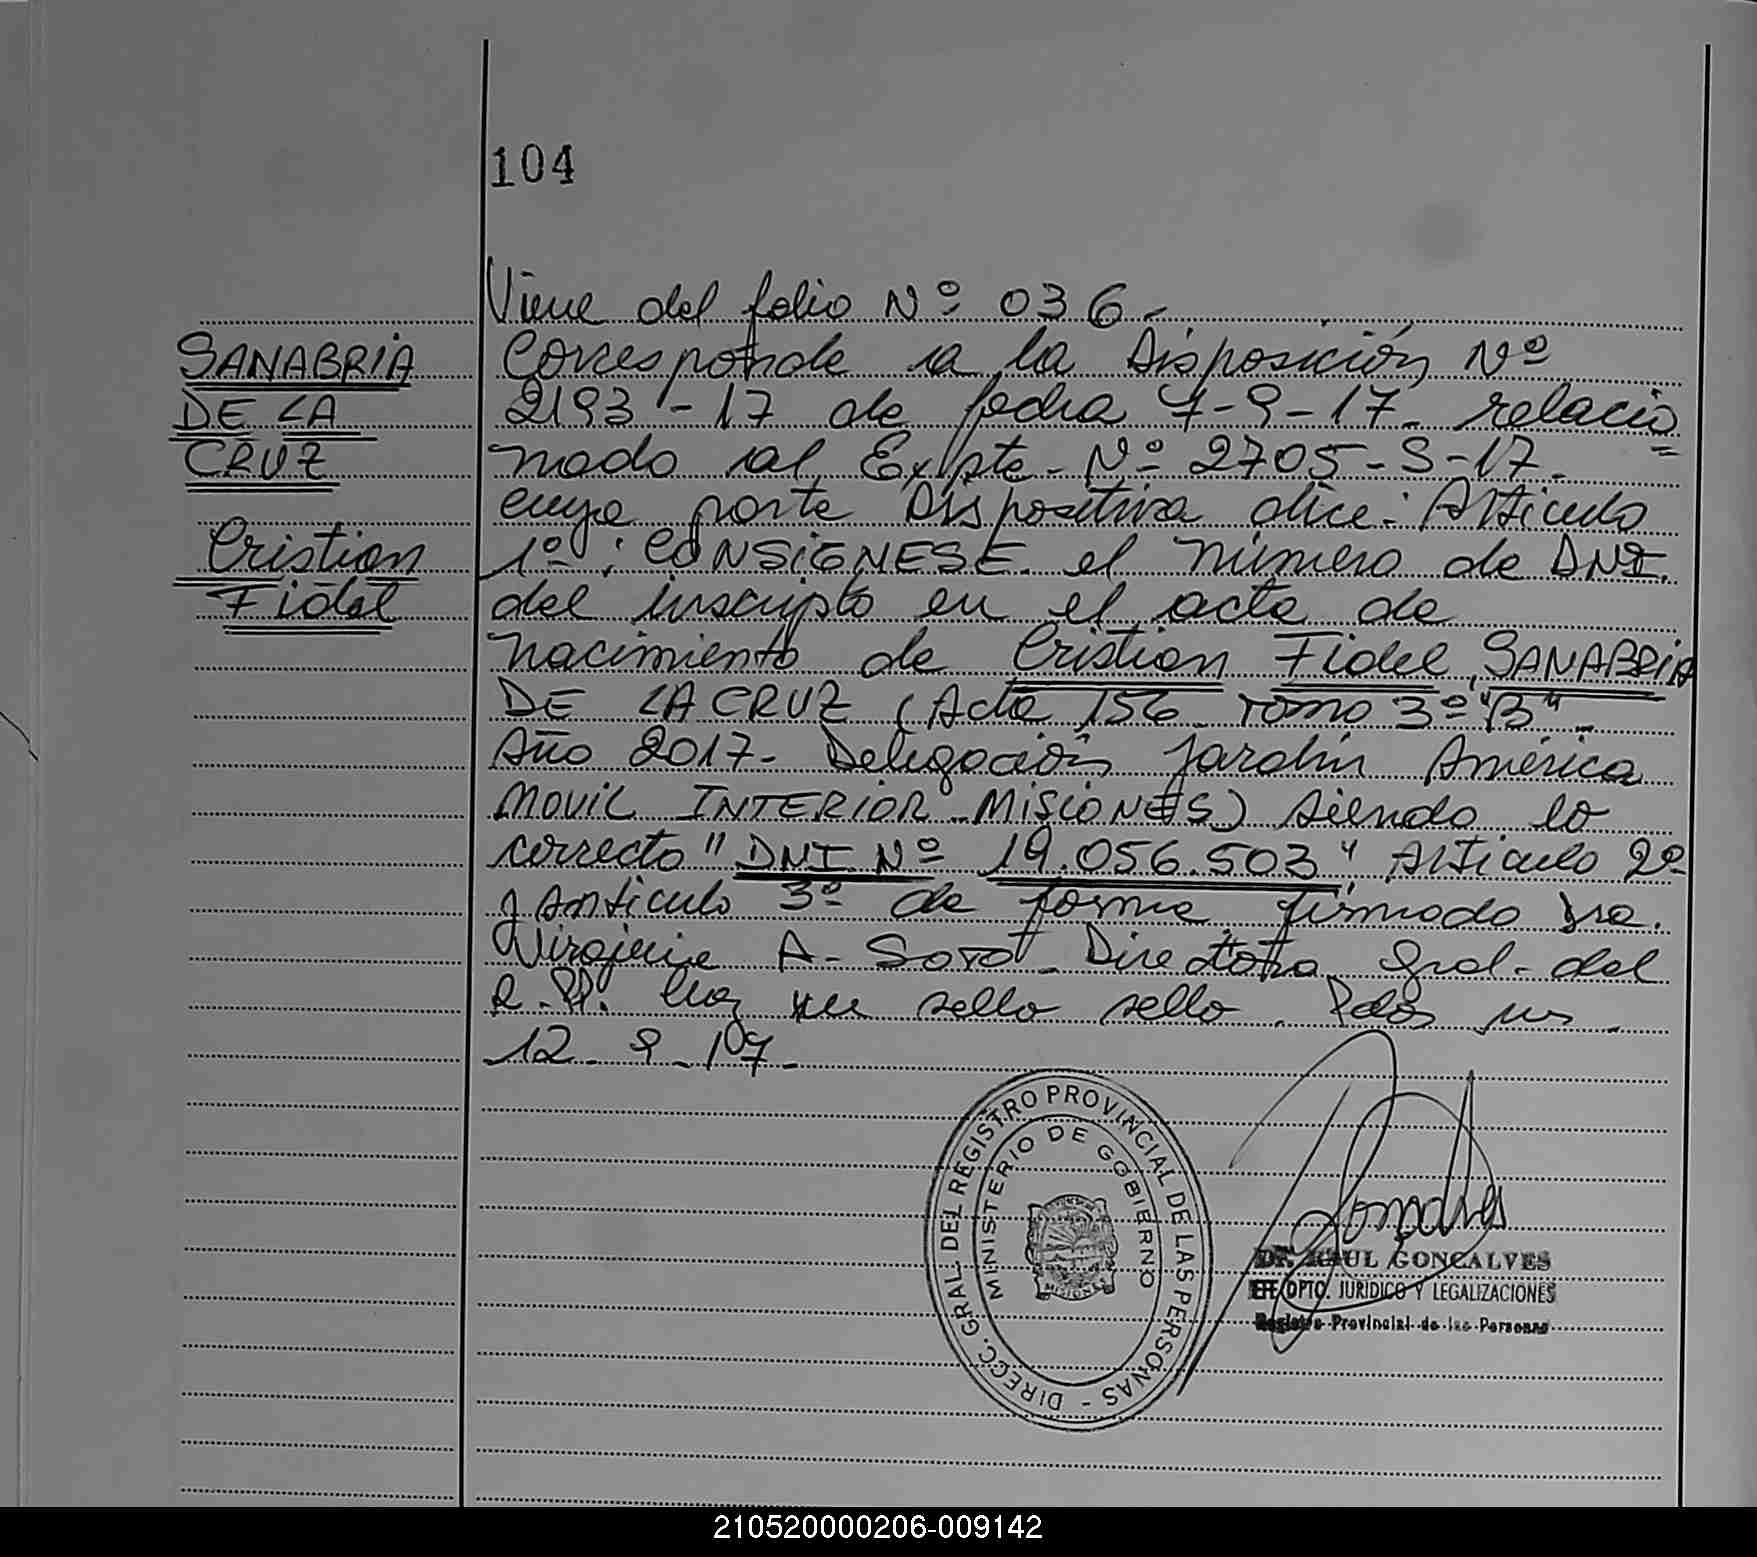 104
Viene del folio Nº 036.-
SANABRIA
DE LA
CRUZ
Cristian
Fidel
Corresponde a la Disposición Nº
2193-17 de fecha 7-9-17. relacio
nado al Expte. Nº 2705-S-17.
cuya parte Dispositiva dice: Articulo
1º: CONSIGNESE el número de DNI.
del inscripto en el acta de
nacimiento de Cristian Fidel SANABRIA
DE LA CRUZ (Acta 156 Tomo 3º "B"
Año 2017- Delegación Jardín América
MOVIL INTERIOR MISIONES) siendo lo
correcto "DNI Nº 19.056.503" Articulo 2º
y Articulo 3º de forma firmado Dra.
Virginia A. Soto Directora Gral. del
R.PP. hay un sello sello. Pdas ms.
12-9-17.-
DIRECC. GRAL. DEL REGISTRO PROVINCIAL DE LAS PERSONAS -
MINISTERIO DE GOBIERNO
MISIONES
DR. RAUL GONCALVES
DPTO. JURIDICO Y LEGALIZACIONES
Registro Provincial de las Personas
210520000206-009142